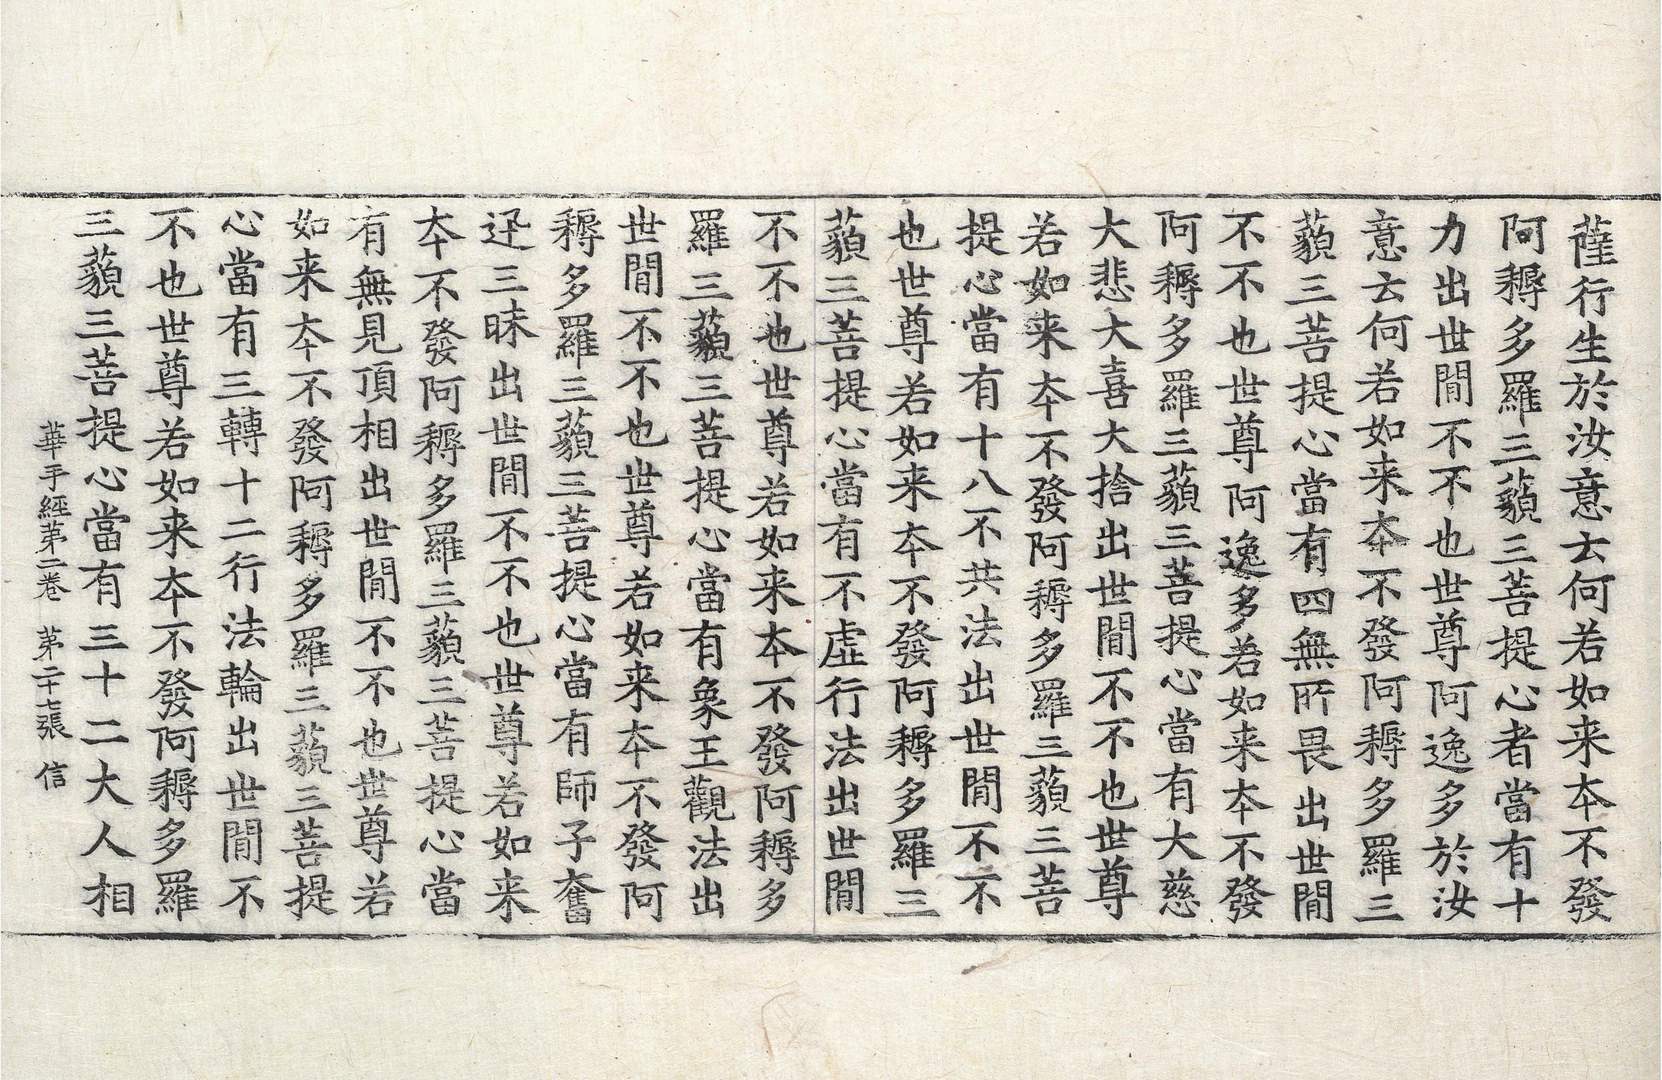 薩行生於汝意云何若如来夲不發
阿耨多羅三藐三菩提心者當有十
力出世間不不也世尊阿逸多於汝
意云何若如来夲不發阿耨多羅三
藐三菩提心當有四無所畏出世間
不不也世尊阿逸多若如来夲不發
阿耨多羅三藐三菩提心當有大慈
大悲大喜大捨出世間不不也世尊
若如来夲不發阿耨多羅三藐三菩
提心當有十八不共法出世間不不
也世尊若如来夲不發阿耨多羅三
藐三菩提心當有不虛行法出世間
不不也世尊若如来夲不發阿耨多
羅三藐三菩提心當有象王觀法出
世間不不也世尊若如来夲不發阿
耨多羅三藐三菩提心當有師子奮
迅三昧出世間不不也世尊若如来
夲不發阿耨多羅三藐三菩提心當
有無見頂相出世間不不也世尊若
如来夲不發阿耨多羅三藐三菩提
心當有三轉十二行法輪出世間不
不也世尊若如来夲不發阿耨多羅
三藐三菩提心當有三十二大人相
華手經第二卷 第二十七張 信